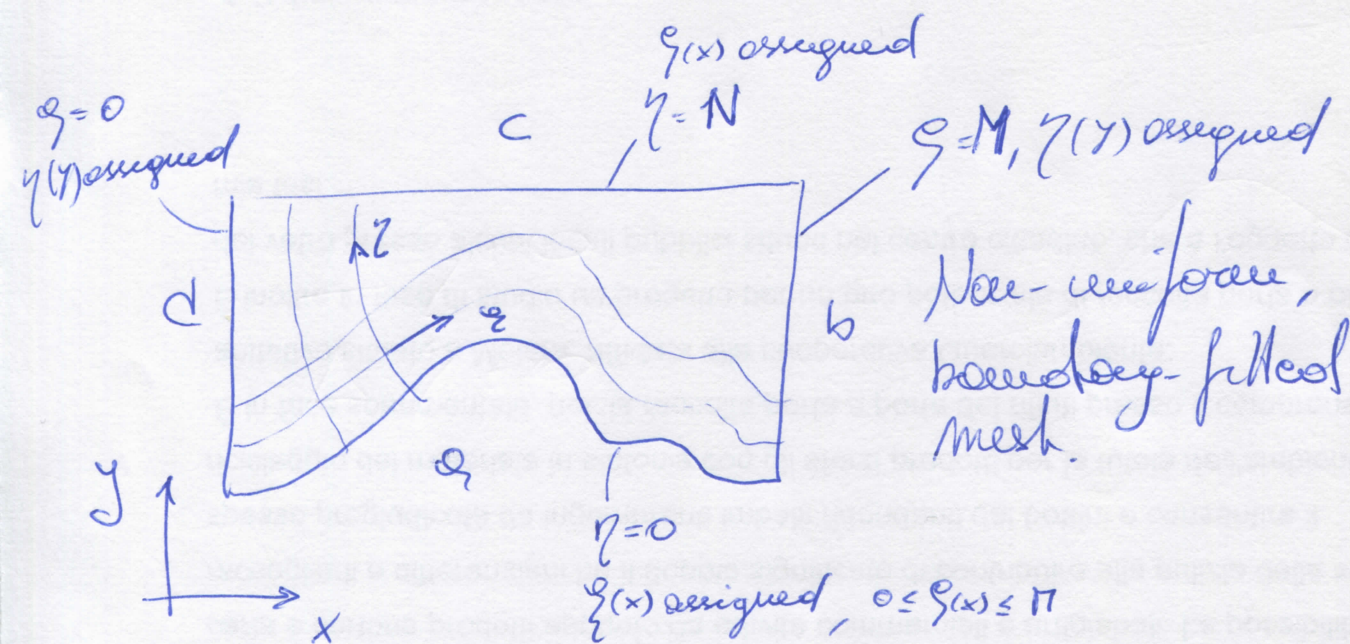 ξ(x) assigned
η=N
ξ=0
η(y) assigned
c
ξ=M, η(y) assigned
η
d
ξ
b
Non-uniform
boundary-fitted
mesh
a
y
η=0
x
ξ(x) assigned 0≤ξ(x)≤M